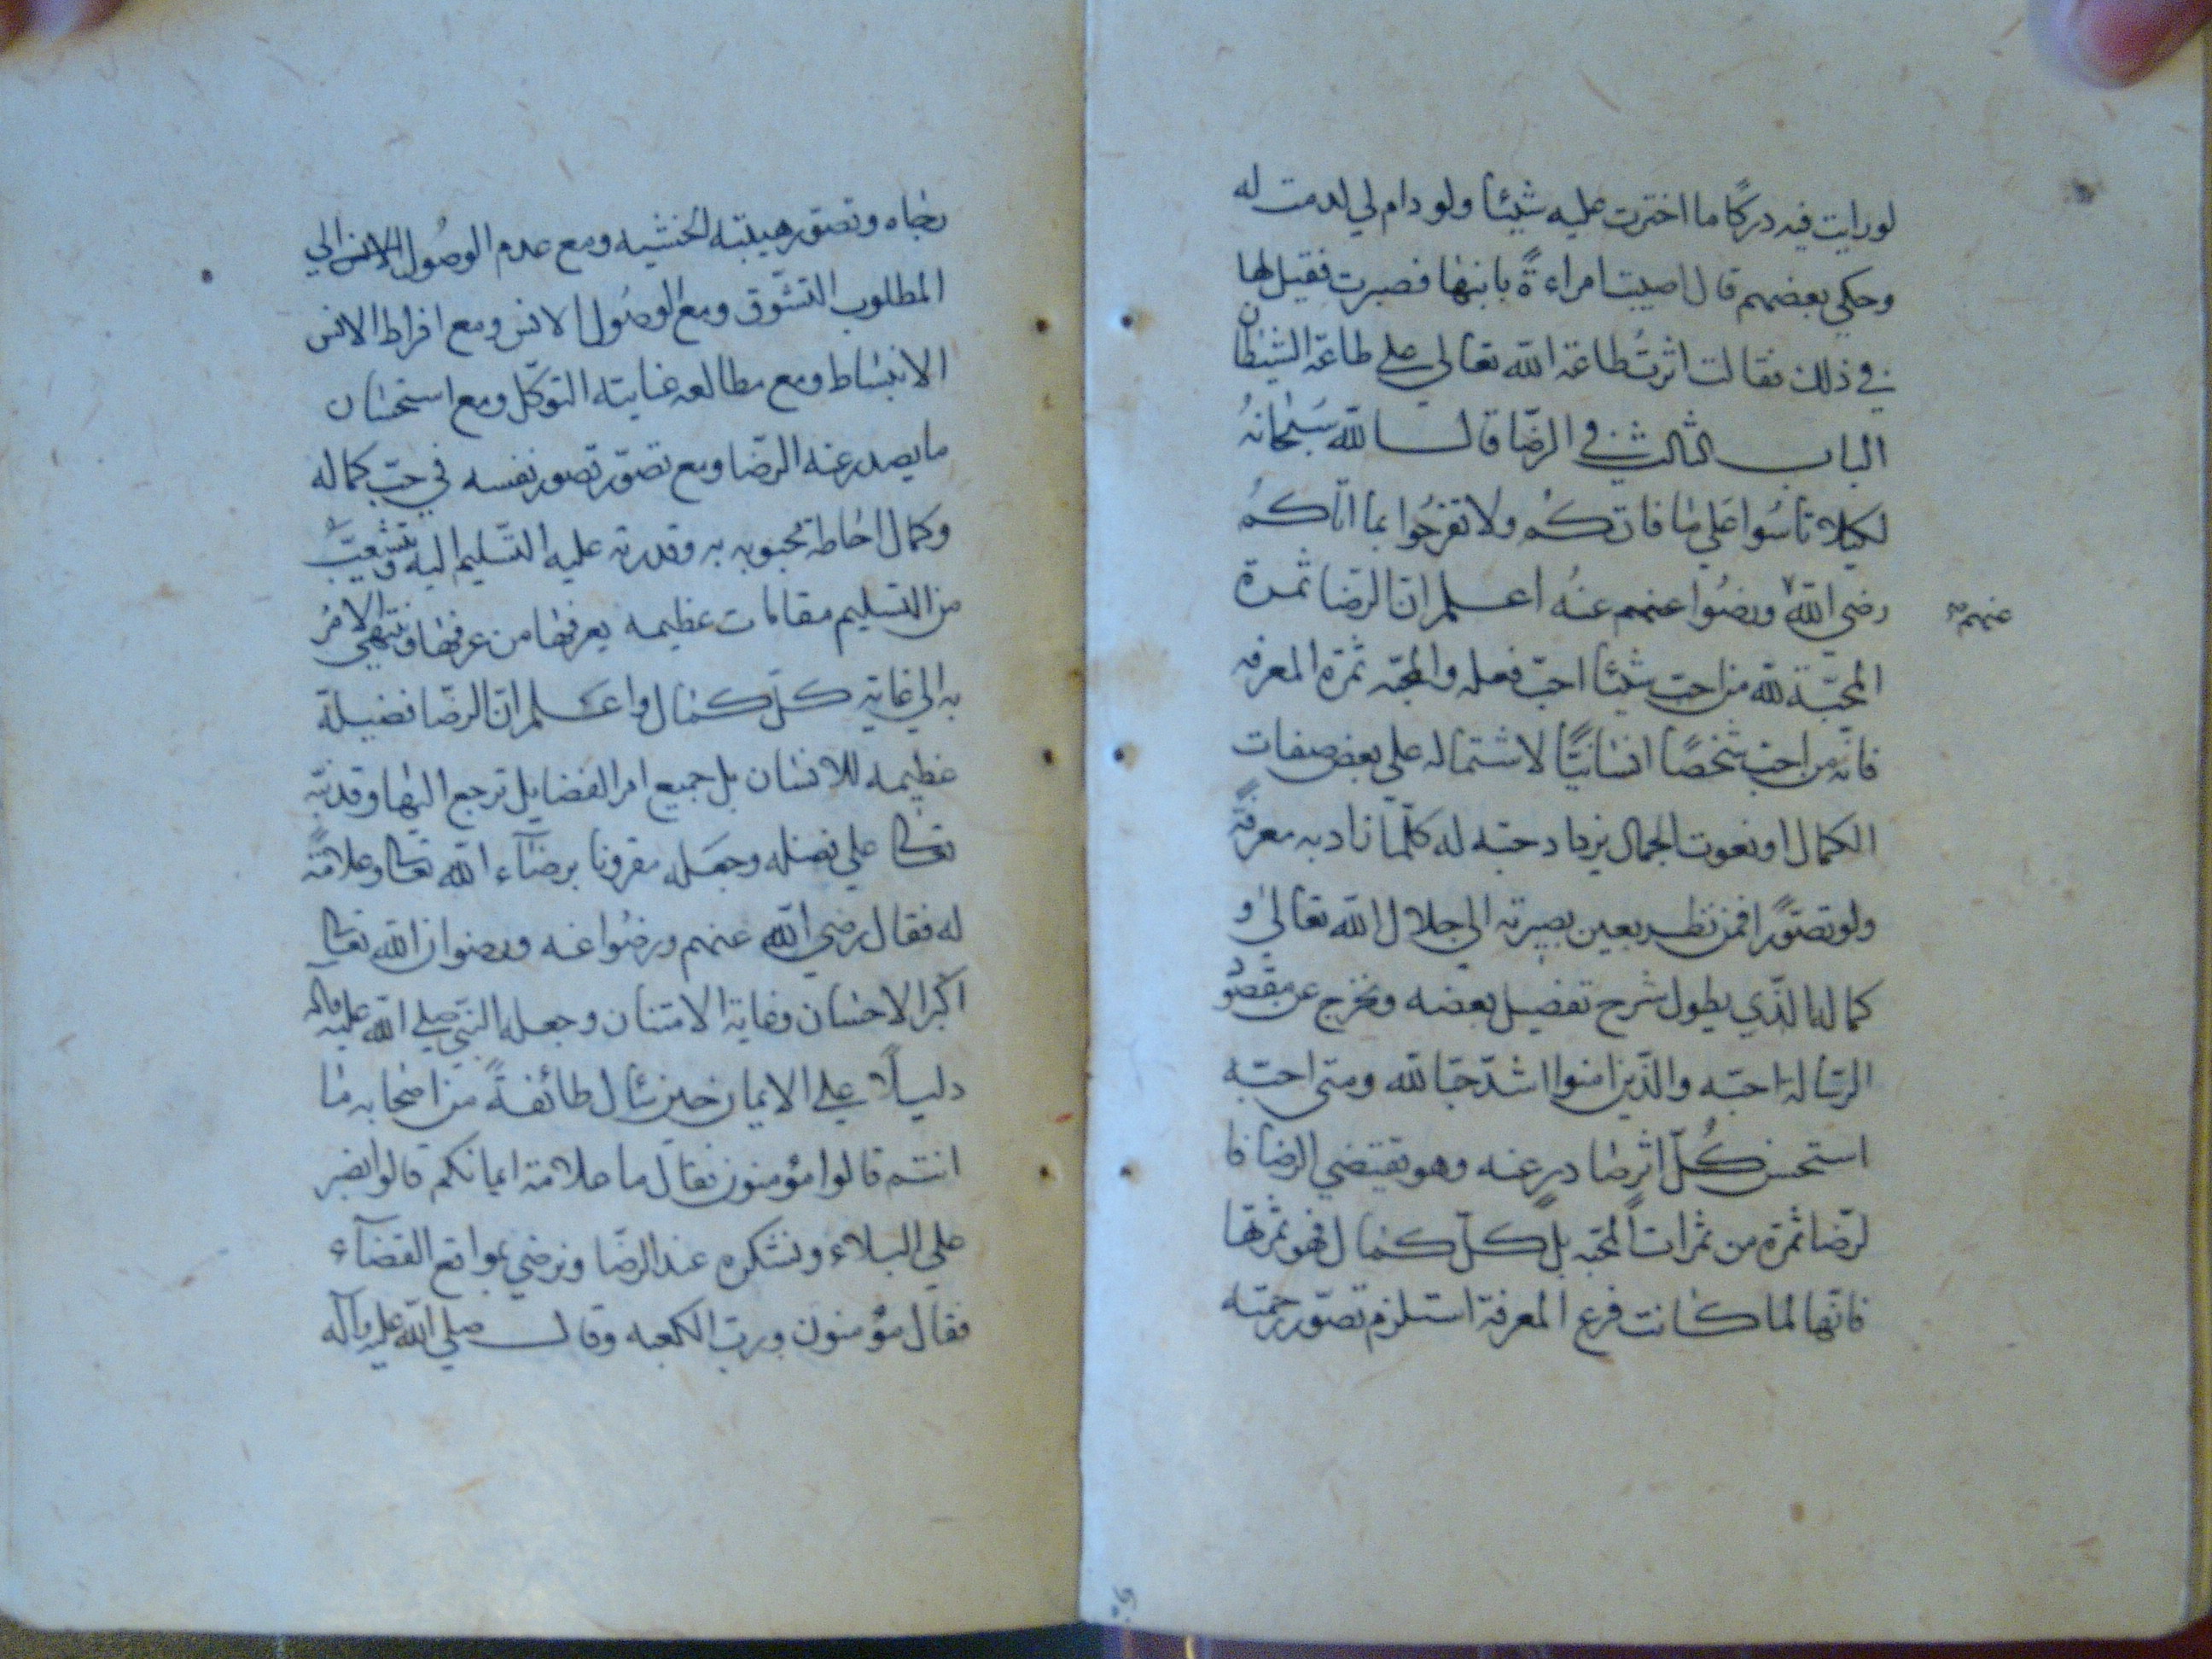 لورايت فيه دركًا ما اخترت عليه شيئا ولو دام لي لدمت له
وحكي بعضهم قال اصيبت امراءةً بابنها فصبرت فقيل لها
في ذلك فقالت اثرتُ طاعة الله تعالي علي طاعة الشيطان
الباب الثالث في الرضّا قال الله سُبْحانهُ
لكيلا تأسُوا عَلي ما فاتكُم ولا تفرحُوا بما اتاكُم
رضي الله ورضُوا عنهم عنهُ اعلم ان الرضا ثمرة
عنهم
المحبّة لله من احب شيئا احبّ فعله والمحبّه ثمرة المعرفه
فانه من احب شخصًا انسانيًّا لاشتماله علي بعض صفات
الكمال او نعوت الجمال يزداد حبّه له كلّما زاد به معرفةً
ولو تصوّرًا فمن نظر بعين بصيرته الي جلال الله تعالي و
كماله الذّي يطول شرح تفصيل بعضه ويخرج عن مقصود
الرسالة احبّه والذّين امنوا اشدّ حبّا لله ومتي احبّه
استحسن كُلّ اثر صادرٍ عنه وهو يقتضي الرضا فا
لرّضا ثمرة من ثمرات المحبّه بل كلّ كمال فهو ثمرتها
فانّها لما كانت فرع المعرفة استلزم تصوّر رحمته
رجاه وتصوّر هيبته الخشيه ومع عدم الوصُول الي
المطلوب التشّوق ومع الوصُول الانس ومع افراط الانس
الانبساط ومع مطالعه عنايته التوكّل ومع استحسان
ما يصدر عنه الرّضا ومع تصوّر تصور نفسه في جنب كماله
وكمال احاطة محبوبه به وقدرته عليه التّسليم اليه وتشعّبُ
من التسليم مقامات عظيمه يعرفها من عرفها وينتهي الامرُ
به الي غاية كلّ كمال واعلم ان الرضّا فضيلة
عظيمه للانسان بل جميع امر الفضايل ترجع اليها وقد نبّه
تعالي علي فضله وجعَله مقرونا برضآء الله تعالي وعلامةً
له فقال رضي الله عنهم ورضُوا عنه ورضوان الله تعالي
اكبر الاحسان وغاية الامتنان وجعله النبّي صلي الله عليه واله
دليلًا علي الايمان حين سأل طائفةً من اصحابه ما
انتم قالوا مؤمنون فقال ما علامة ايمانكم قالوا نصبر
علي البلاء ونشكره عند الرضّا ونرضي بمواقع القضآء
فقال مؤمنون وربّ الكعبه وقال صلي الله عليه وآله